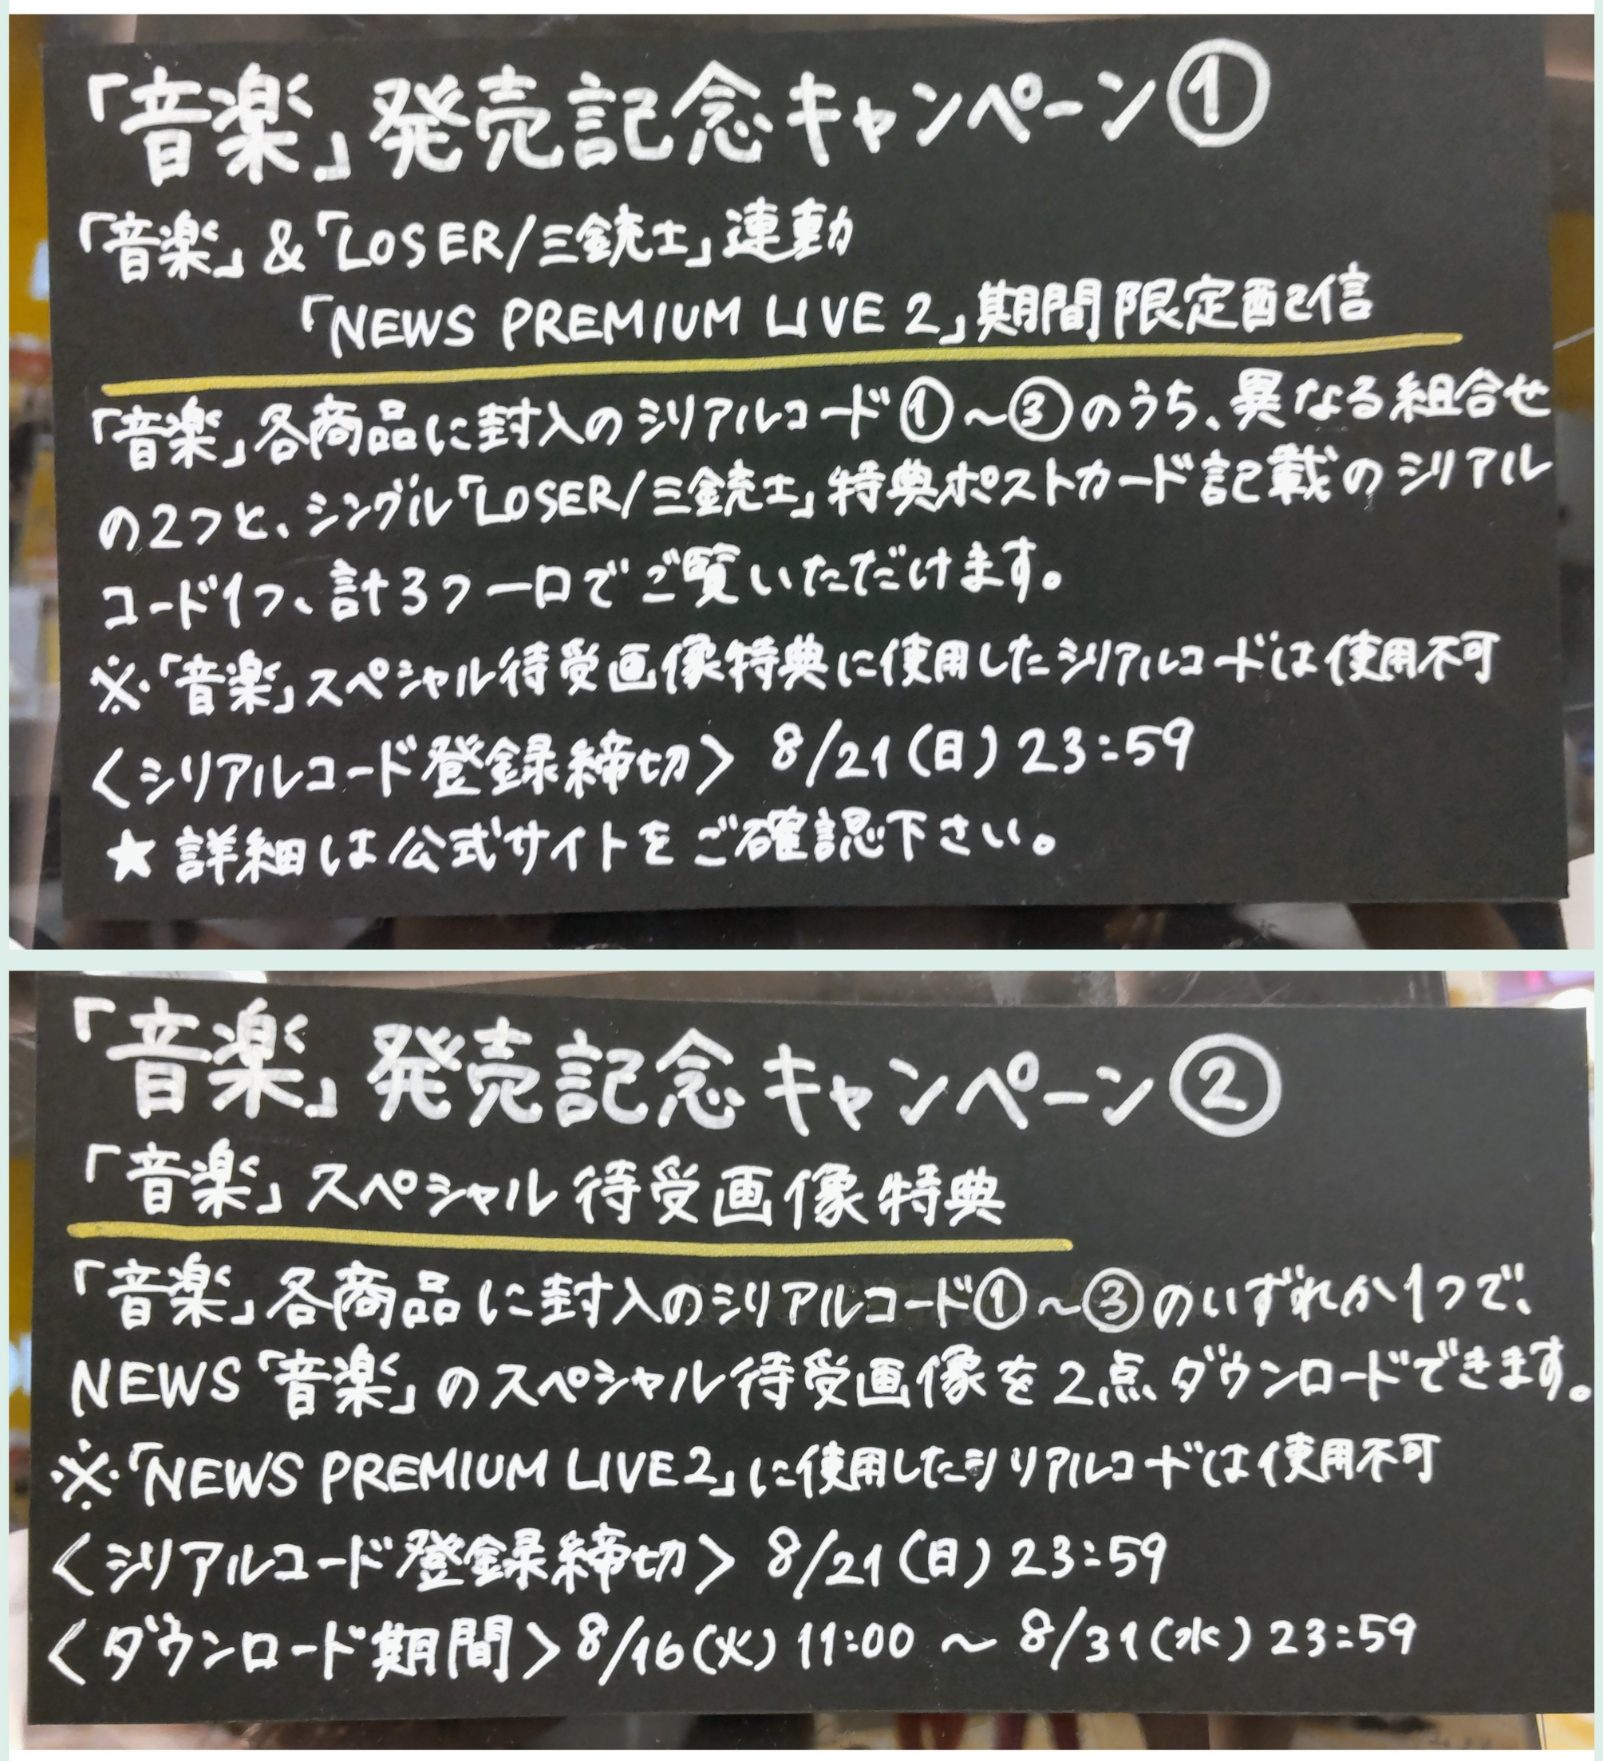 「音楽」発売記念キャンペーン①
「音楽」&「LOSER/三銃士」連動
「NEWS PREMIUM LIVE 2」期間限定配信
「音楽」各商品に封入のシリアルコード①~③のうち、異なる組合せ
の2つと、シングル「LOSER/三銃士」特典ポストカード記載のシリアル
コード1つ、計3つ一口でご覧いただけます。
※「音楽」スペシャル待受画像特典に使用したシリアルコードは使用不可
<シリアルコード登録締切> 8/21(日)23:59
★詳細は公式サイトをご確認下さい。
「音楽」発売記念キャンペーン②
「音楽」スペシャル待受画像特典
「音楽」各商品に封入のシリアルコード①~③のいずれか1つで、
NEWS「音楽」のスペシャル待受画像を2点ダウンロードできます。
※「NEWS PREMIUM LIVE2」に使用したシリアルコードは使用不可
<シリアルコード登録締切> 8/21(日)23:59
<ダウンロード期間>8/16(火)11:00 ~ 8/31(水)23:59